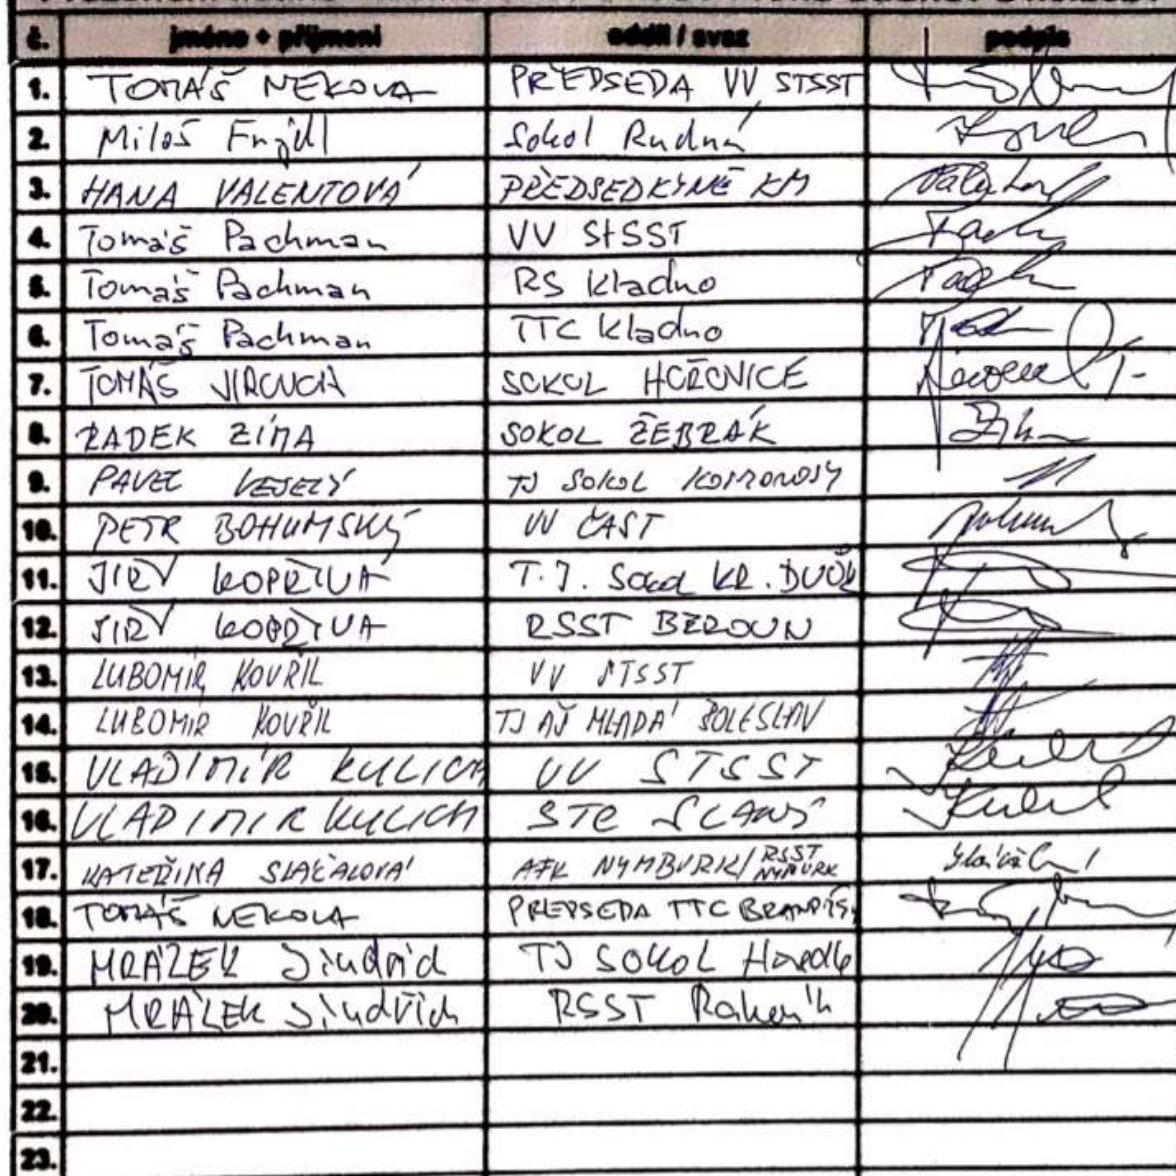 č. jméno + příjmení oddíl / svaz podpis
1. TOMÁŠ NEKOLA PŘEDSEDA VV STSST
2. Miloš Sokol Rudná
3. HANA VALENTOVÁ PŘEDSEDKYNĚ KM
4. Tomáš Pachman VV StSST
5. Tomáš Pachman RS Kladno
6. Tomáš Pachman TTC Kladno
7. TOMÁŠ SOKOL HOŘOVICE
8. RADEK ZÍMA SOKOL ŽEBRÁK
9. PAVEL VESELÝ TJ SOKOL KOMOROVY
10. PETR BOHUMSKÝ VV ČAST
11. JIŘÍ KOPŘIVA T.J. Sokol KR. DVŮR
12. JIŘÍ KOPŘIVA RSST BEROUN
13. LUBOMÍR KOUŘIL VV STSST
14. LUBOMÍR KOUŘIL TJ AŠ MLADÁ BOLESLAV
15. VLADIMÍR KULICH VV STSST
16. VLADIMIR KULICH STC SLANÝ
17. KATEŘINA AFK NYMBURK/RSST NYMBURK
18. TOMÁŠ NEKOLA PŘEDSEDA TTC BRANDÝS
19. MRÁZEK Jindřich TJ SOKOL
20. MRÁZEK Jindřich RSST Rakovník
21.
22.
23.